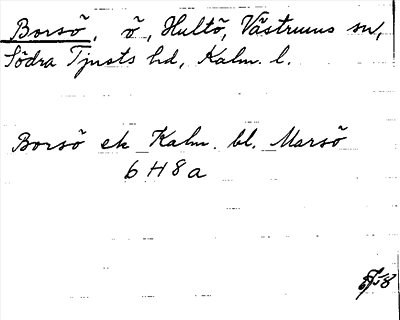 Borsö, ö, Hultö, Västrums sn,
Södra Tjusts hd, Kalm. l.
Borsö ek Kalm. bl. Marsö
6H8a